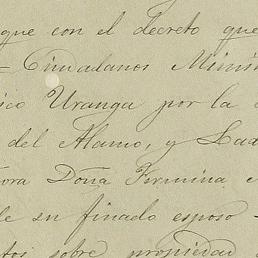 que con el decreto que
Ciudadanos Minis
ico Uranga por la
del Alamo, y Lad
ora Doña Fermina
le su finado esposo
tos sobre propiedad